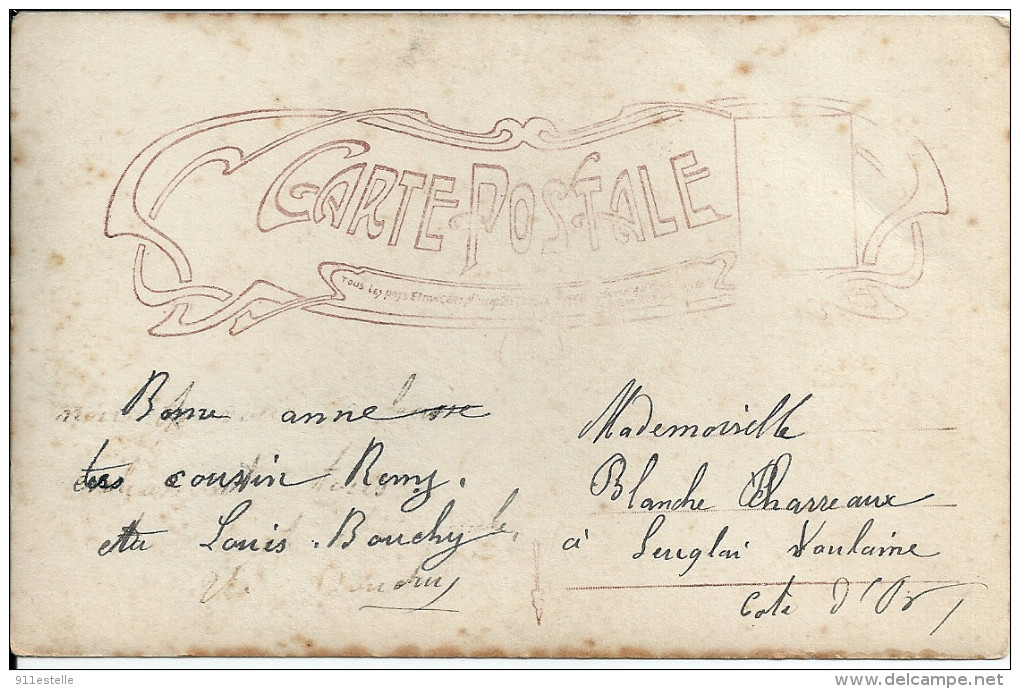 CARTE POSTALE
TOUS LES PAYS ETRANGERS
Bonne anne
tes cousin Remy.
et ta Louis. Bouchy
Mademoiselle
Blanche Charreaux
à Leuglai Voulaine
Cote d'Or
911estelle
www.delcampe.net